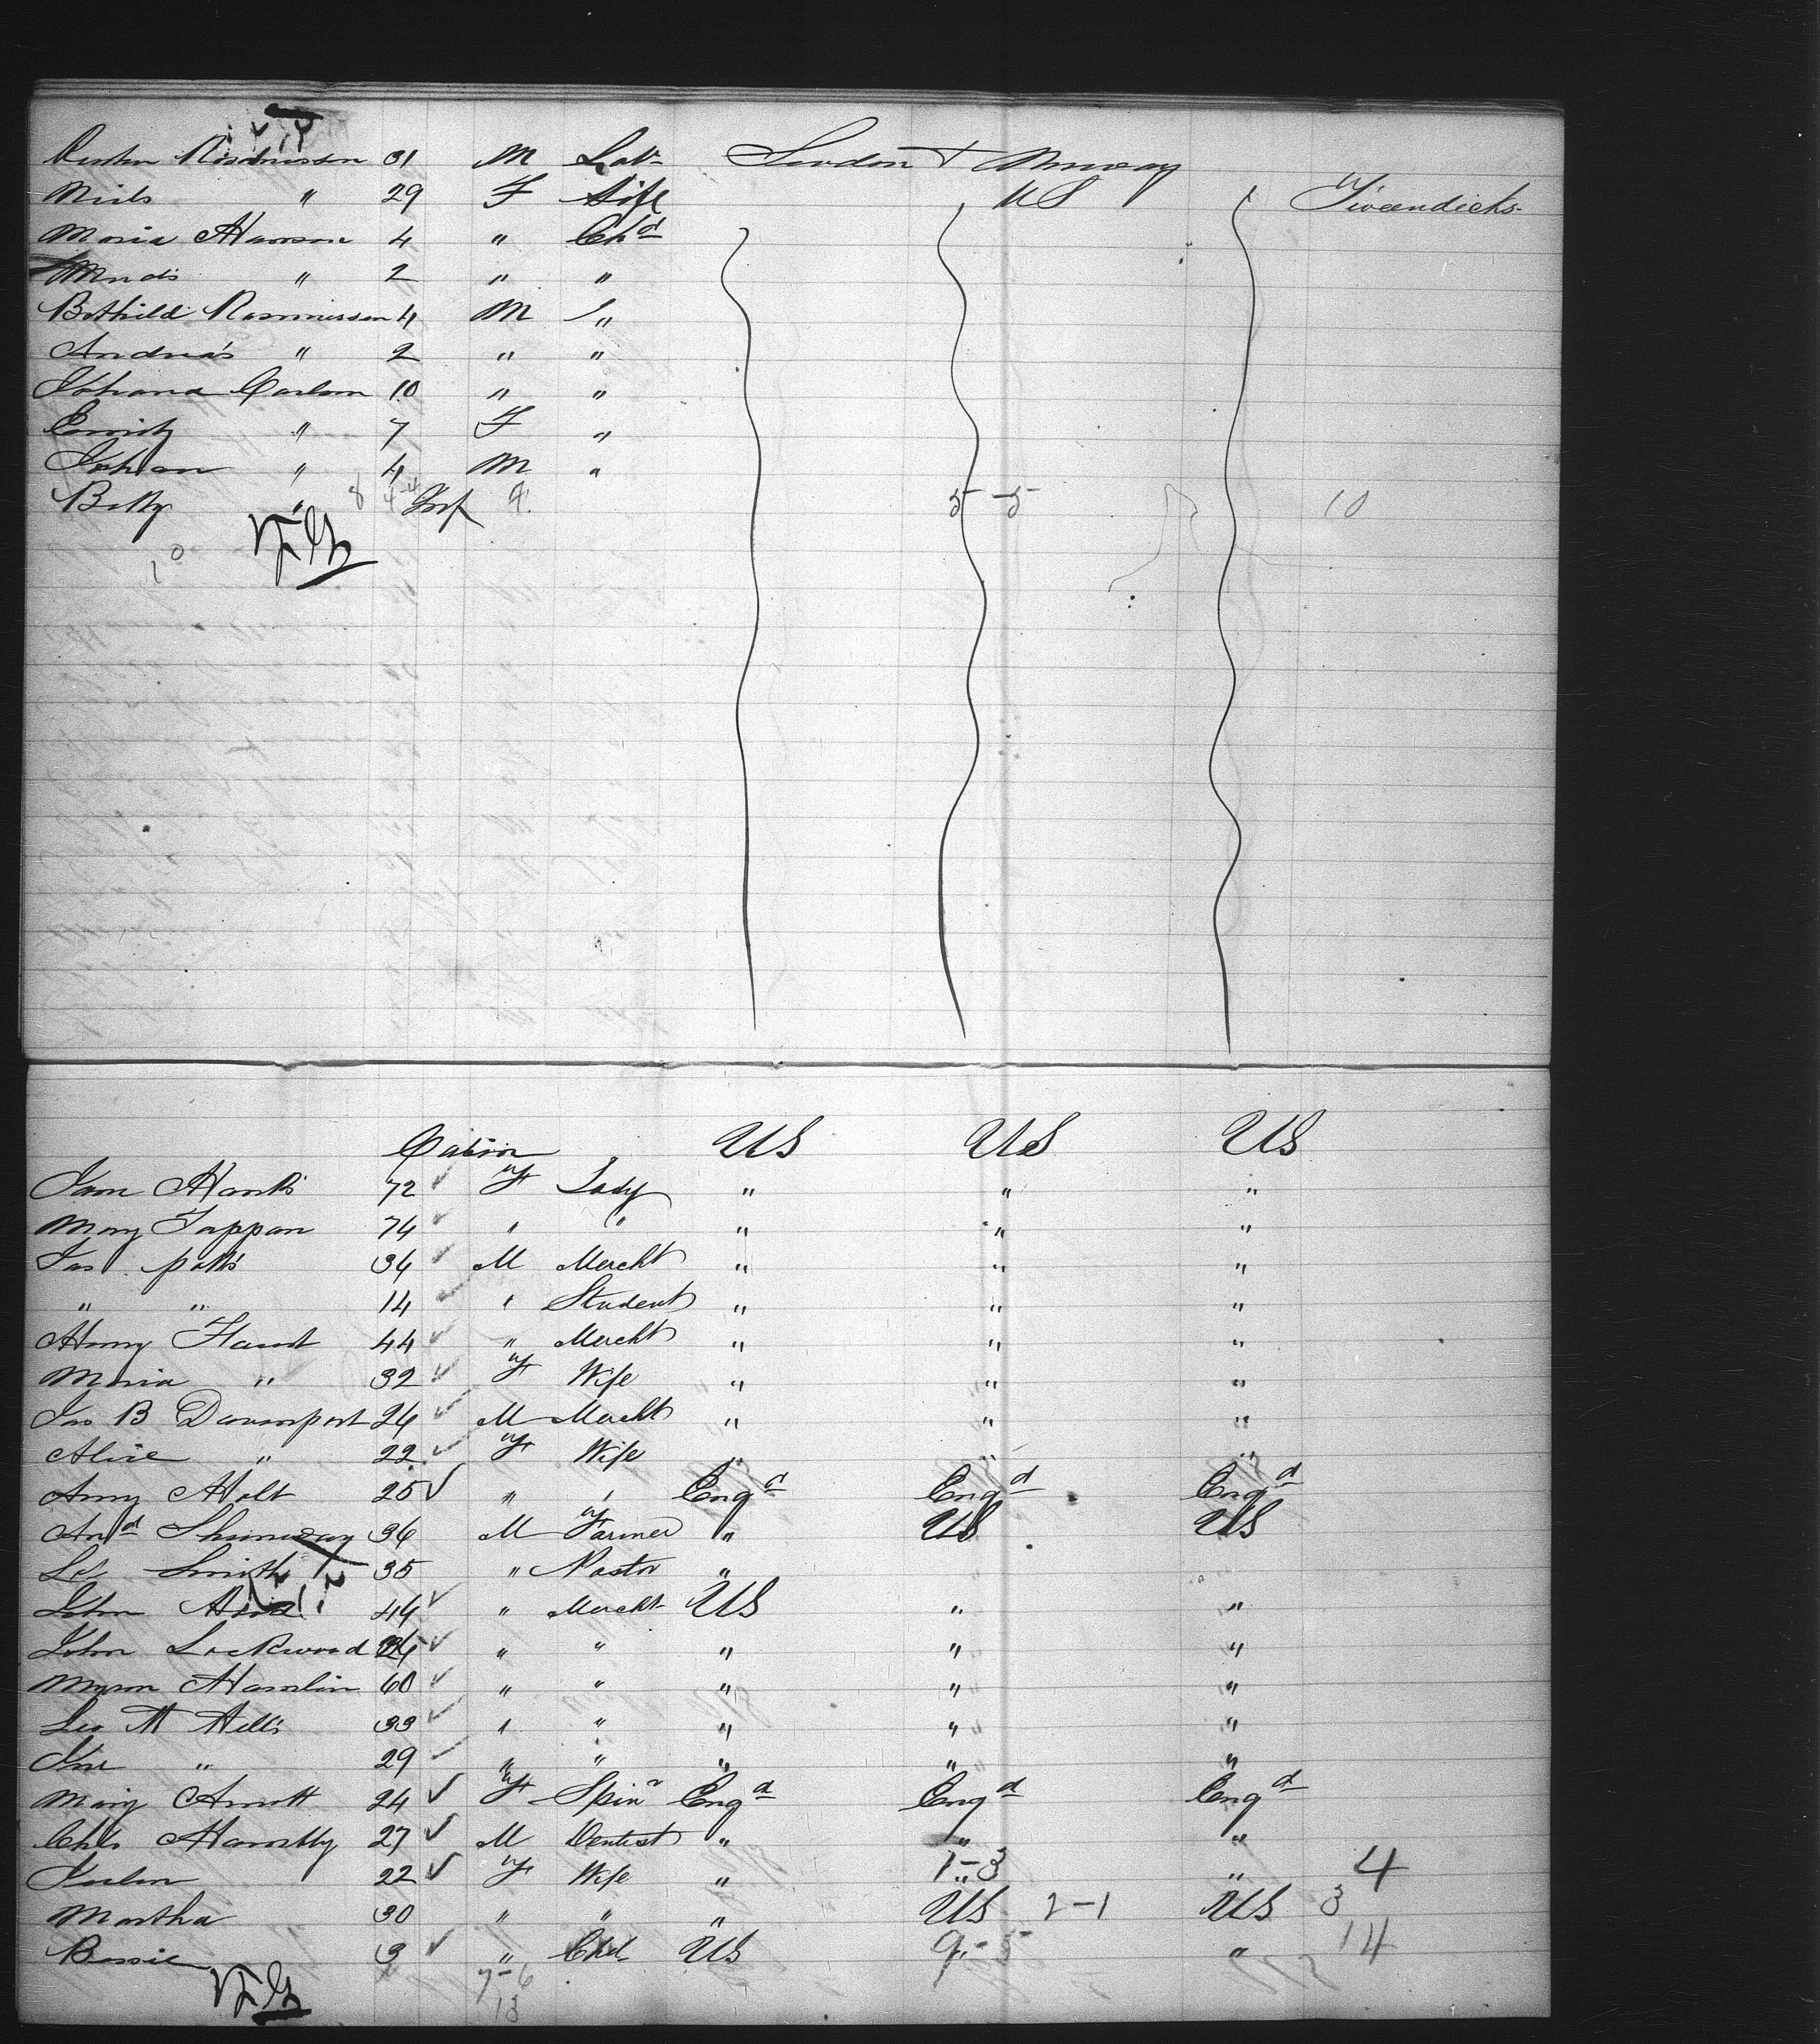 Rasmussen 31 M Lab London + Norway
Niels " 29 F Wife US
Maria Hanson 4 " Chd
Mads " 2 " "
Bothild Rasmussen 4 M "
Andreas " 2 " "
Johana Carlson 10 " "
Emily " 7 F "
Johan " 4 M "
Betty " 8 4-4 Inf 9 5-5 10
10
Cabin US US US
Jane Hanks 72 F Lady " " "
Mary Tappan 74 " " " " "
Jas Potts 34 M Mercht " " "
" " 14 " Student " " "
Henry Faust 44 " Mercht " " "
Maria " 32 F Wife " " "
Jno B Davenport 24 M Mercht " " "
Alice " 22 F Wife " " "
Amy Holt 25 " " Engd Engd Engd
And Shumway 36 M Farmer " US US
Smith 35 " Pastor "
John 44 " Mercht US " "
John Lockwood " " " " "
Myron Hamlin 60 " " " " "
Geo M Hills 33 " " " " "
" 29 " " " " "
Mary Arnott 24 F Spinr Engd Engd Engd
Chls 27 M Dentist " " "
22 F Wife " 1-3 " 4
Martha 30 " " " US 2-1 US 3
Bessie 3 " Chd US 9-5 " 14
7-6
13